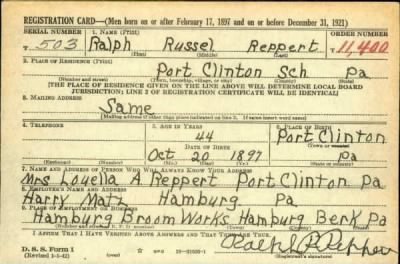 REGISTRATION CARD—(Men born on or after February 17, 1897 and on or before December 31, 1921)
SERIAL NUMBER 1. NAME (Print) ORDER NUMBER
T 503 Ralph Russel Reppert T 11,400
(First) (Middle) (Last)
2. PLACE OF RESIDENCE (Print)
Port Clinton Sch Pa
(Number and street) (Town, township, village, or city) (County) (State)
[THE PLACE OF RESIDENCE GIVEN ON THE LINE ABOVE WILL DETERMINE LOCAL BOARD
JURISDICTION; LINE 2 OF REGISTRATION CERTIFICATE WILL BE IDENTICAL]
3. MAILING ADDRESS
Same
[Mailing address if other than place indicated on line 2. If same insert word same]
4. TELEPHONE 5. AGE IN YEARS 6. PLACE OF BIRTH
44 Port Clinton
DATE OF BIRTH (Town or county)
Oct 20 1897 Pa
(Exchange) (Number) (Mo.) (Day) (Yr.) (State or country)
7. NAME AND ADDRESS OF PERSON WHO WILL ALWAYS KNOW YOUR ADDRESS
Mrs Louella A Reppert Port Clinton Pa
8. EMPLOYER'S NAME AND ADDRESS
Harry Matz Hamburg Pa
9. PLACE OF EMPLOYMENT OR BUSINESS
Hamburg Broom Works Hamburg Berk Pa
(Number and street or R. F. D. number) (Town) (County) (State)
I AFFIRM THAT I HAVE VERIFIED ABOVE ANSWERS AND THAT THEY ARE TRUE.
D. S. S. Form 1
(Revised 1-1-42)
Ralph R Reppert
(Registrant's signature)